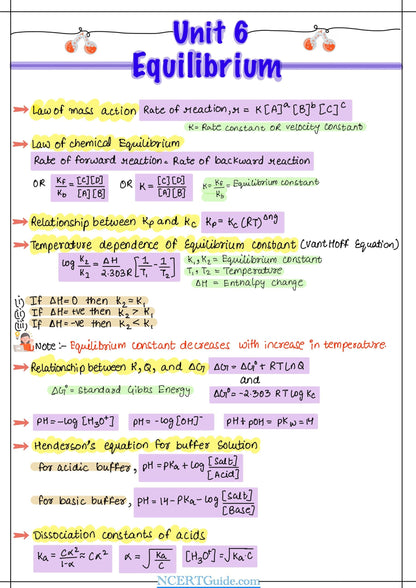 Unit 6
Equilibrium
Law of mass action Rate of reaction, r = K[A]ᵃ [B]ᵇ [C]ᶜ
K = Rate constant or velocity constant
Law of chemical Equilibrium
Rate of forward reaction = Rate of backward reaction
OR Kf/Kb = [C][D]/[A][B] OR K = [C][D]/[A][B] K = Kf/Kb = Equilibrium constant
Relationship between Kp and Kc Kp = Kc (RT)^Δng
Temperature dependence of Equilibrium constant (Vant Hoff Equation)
log K₂/K₁ = ΔH/2.303R [1/T₁ - 1/T₂] K₁, K₂ = Equilibrium constant
T₁, T₂ = Temperature
ΔH = Enthalpy change
(i) If ΔH = 0 then K₂ = K₁
(ii) If ΔH = +ve then K₂ > K₁
(iii) If ΔH = -ve then K₂ < K₁
Note :- Equilibrium constant decreases with increase in temperature.
Relationship between K, Q, and ΔG ΔG = ΔG° + RT ln Q
and
ΔG° = Standard Gibbs Energy ΔG° = -2.303 RT log Kc
pH = -log [H₃O⁺] pH = -log [OH]⁻ pH + pOH = pKw = 14
Henderson's equation for buffer Solution
for acidic buffer, pH = pKa + log [Salt]/[Acid]
for basic buffer, pH = 14 - pKa - log [Salt]/[Base]
Dissociation constants of acids
Ka = Cα²/1-α ≈ Cα² α = √Ka/C [H₃O⁺] = √Ka.C
NCERTGuide.com